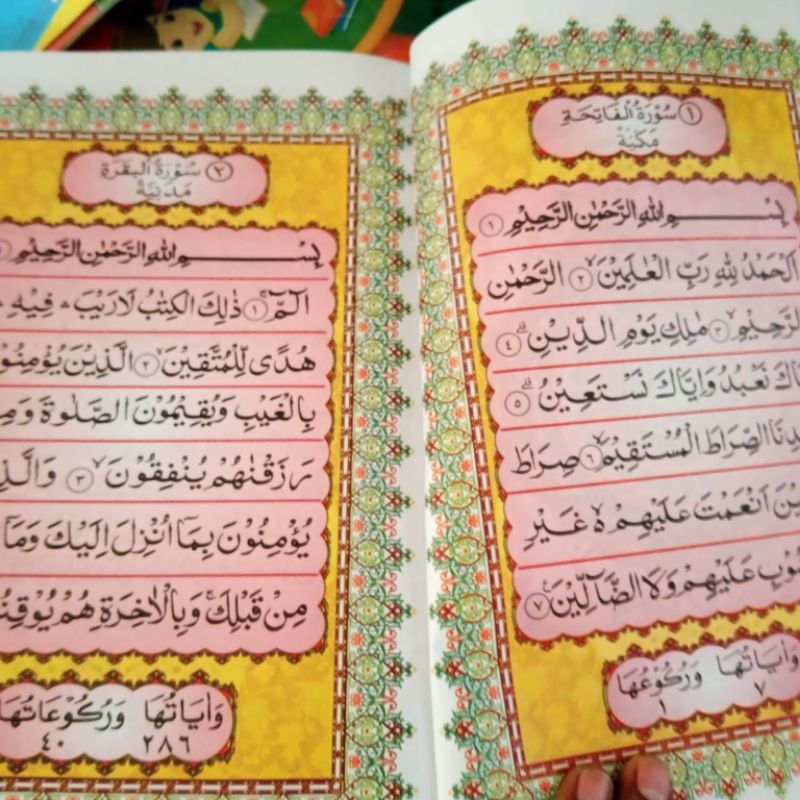 ١ سُوْرَةُ الْفَاتِحَةِ
مَكِّيَّةٌ
بِسْمِ اللهِ الرَّحْمٰنِ الرَّحِيْمِ ١
اَلْحَمْدُ لِلّٰهِ رَبِّ الْعٰلَمِيْنَ ٢ الرَّحْمٰنِ
الرَّحِيْمِ ٣ مٰلِكِ يَوْمِ الدِّيْنِ ٤
نَعْبُدُ وَاِيَّاكَ نَسْتَعِيْنُ ٥
الصِّرَاطَ الْمُسْتَقِيْمَ ٦ صِرَاطَ
اَنْعَمْتَ عَلَيْهِمْ ەۙ غَيْرِ
عَلَيْهِمْ وَلَا الضَّآلِّيْنَ ٧
وَاٰيَاتُهَا وَرُكُوْعُهَا
٧ ١
٢ سُوْرَةُ الْبَقَرَةِ
مَدَنِيَّةٌ
بِسْمِ اللهِ الرَّحْمٰنِ الرَّحِيْمِ
الٓمّٓ ١ ذٰلِكَ الْكِتٰبُ لَا رَيْبَ ۛ فِيْهِ ۛ
هُدًى لِّلْمُتَّقِيْنَ ٢ الَّذِيْنَ يُؤْمِنُوْ
بِالْغَيْبِ وَيُقِيْمُوْنَ الصَّلٰوةَ وَمِ
رَزَقْنٰهُمْ يُنْفِقُوْنَ ٣ وَالَّذِ
يُؤْمِنُوْنَ بِمَآ اُنْزِلَ اِلَيْكَ وَمَآ
مِنْ قَبْلِكَ وَبِالْاٰخِرَةِ هُمْ يُوْقِنُ
وَاٰيَاتُهَا وَرُكُوْعَاتُهَا
٢٨٦ ٤٠